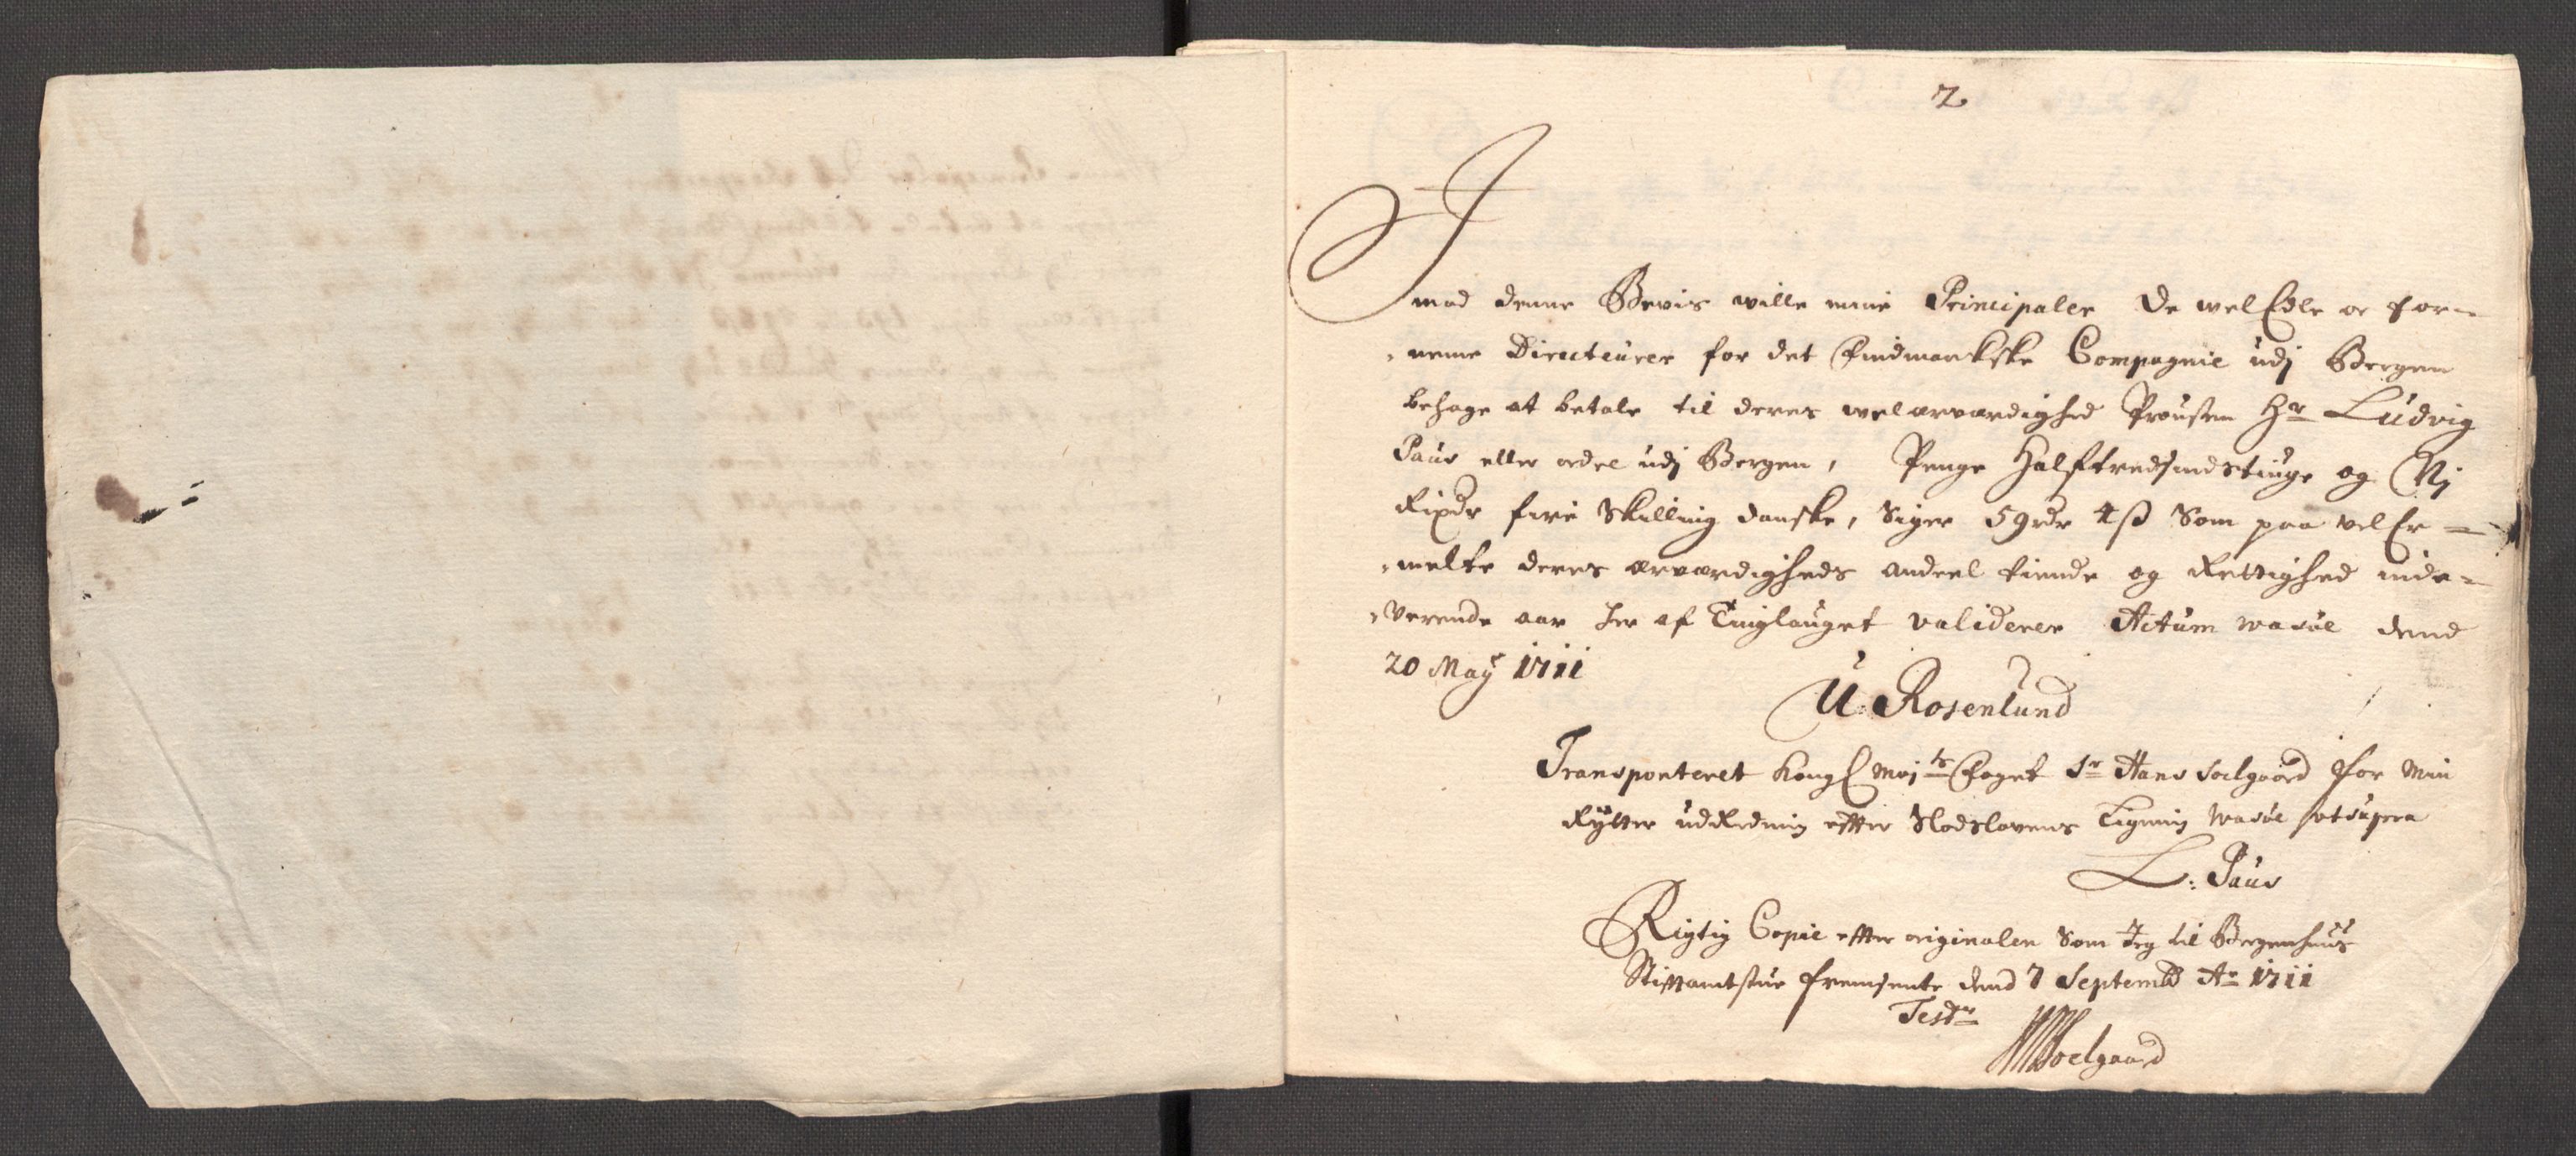 2
Imod denne Bevis wille mine Principaler De welEdle oc for-
neme Directeurer for det Findmarkske Compagnie udj Bergen
behage at betale til deres welærværdighed Provsten Hr Ludvig
Paus eller ordre udj Bergen, Penge Halftredsindstiuge og Nj
Rixdr fire Skilling danske, Siger 59rdr 4ß Som paa velEr-
melte deres ærværdigheds andeel tiende og Rettighed inde-
verende aar her af Tinglauget validerer Actum wasöe dend
20 May 1711
U. Rosenlund
Transporteret Kongl Majts Foget Sr Hans Soelgaard for min
Rytter udRedning efter Slodslovens Ligning Wasöe ut supra
L: Paus
Rigtig Copie efter originalen Som Jeg til Bergenhuus
Stiftamtstue fremsente dend 7 Septembr Ao 1711
Test
HSoelgaard